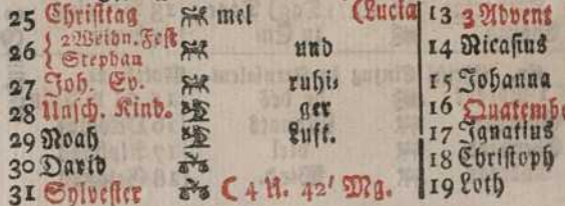 25 Christtag mel (Lucia 13 3 Advent
26 { 2 Weihn. Fest
Stephan und 14 Nicasius
27 Joh. Ev. ruhi= 15 Johanna
28 Unsch. Kind. ger 16 Quatembe
29 Noah Luft. 17 Ignatius
30 David 18 Christoph
31 Sylvester ☾ 4 U. 42' Mg. 19 Loth